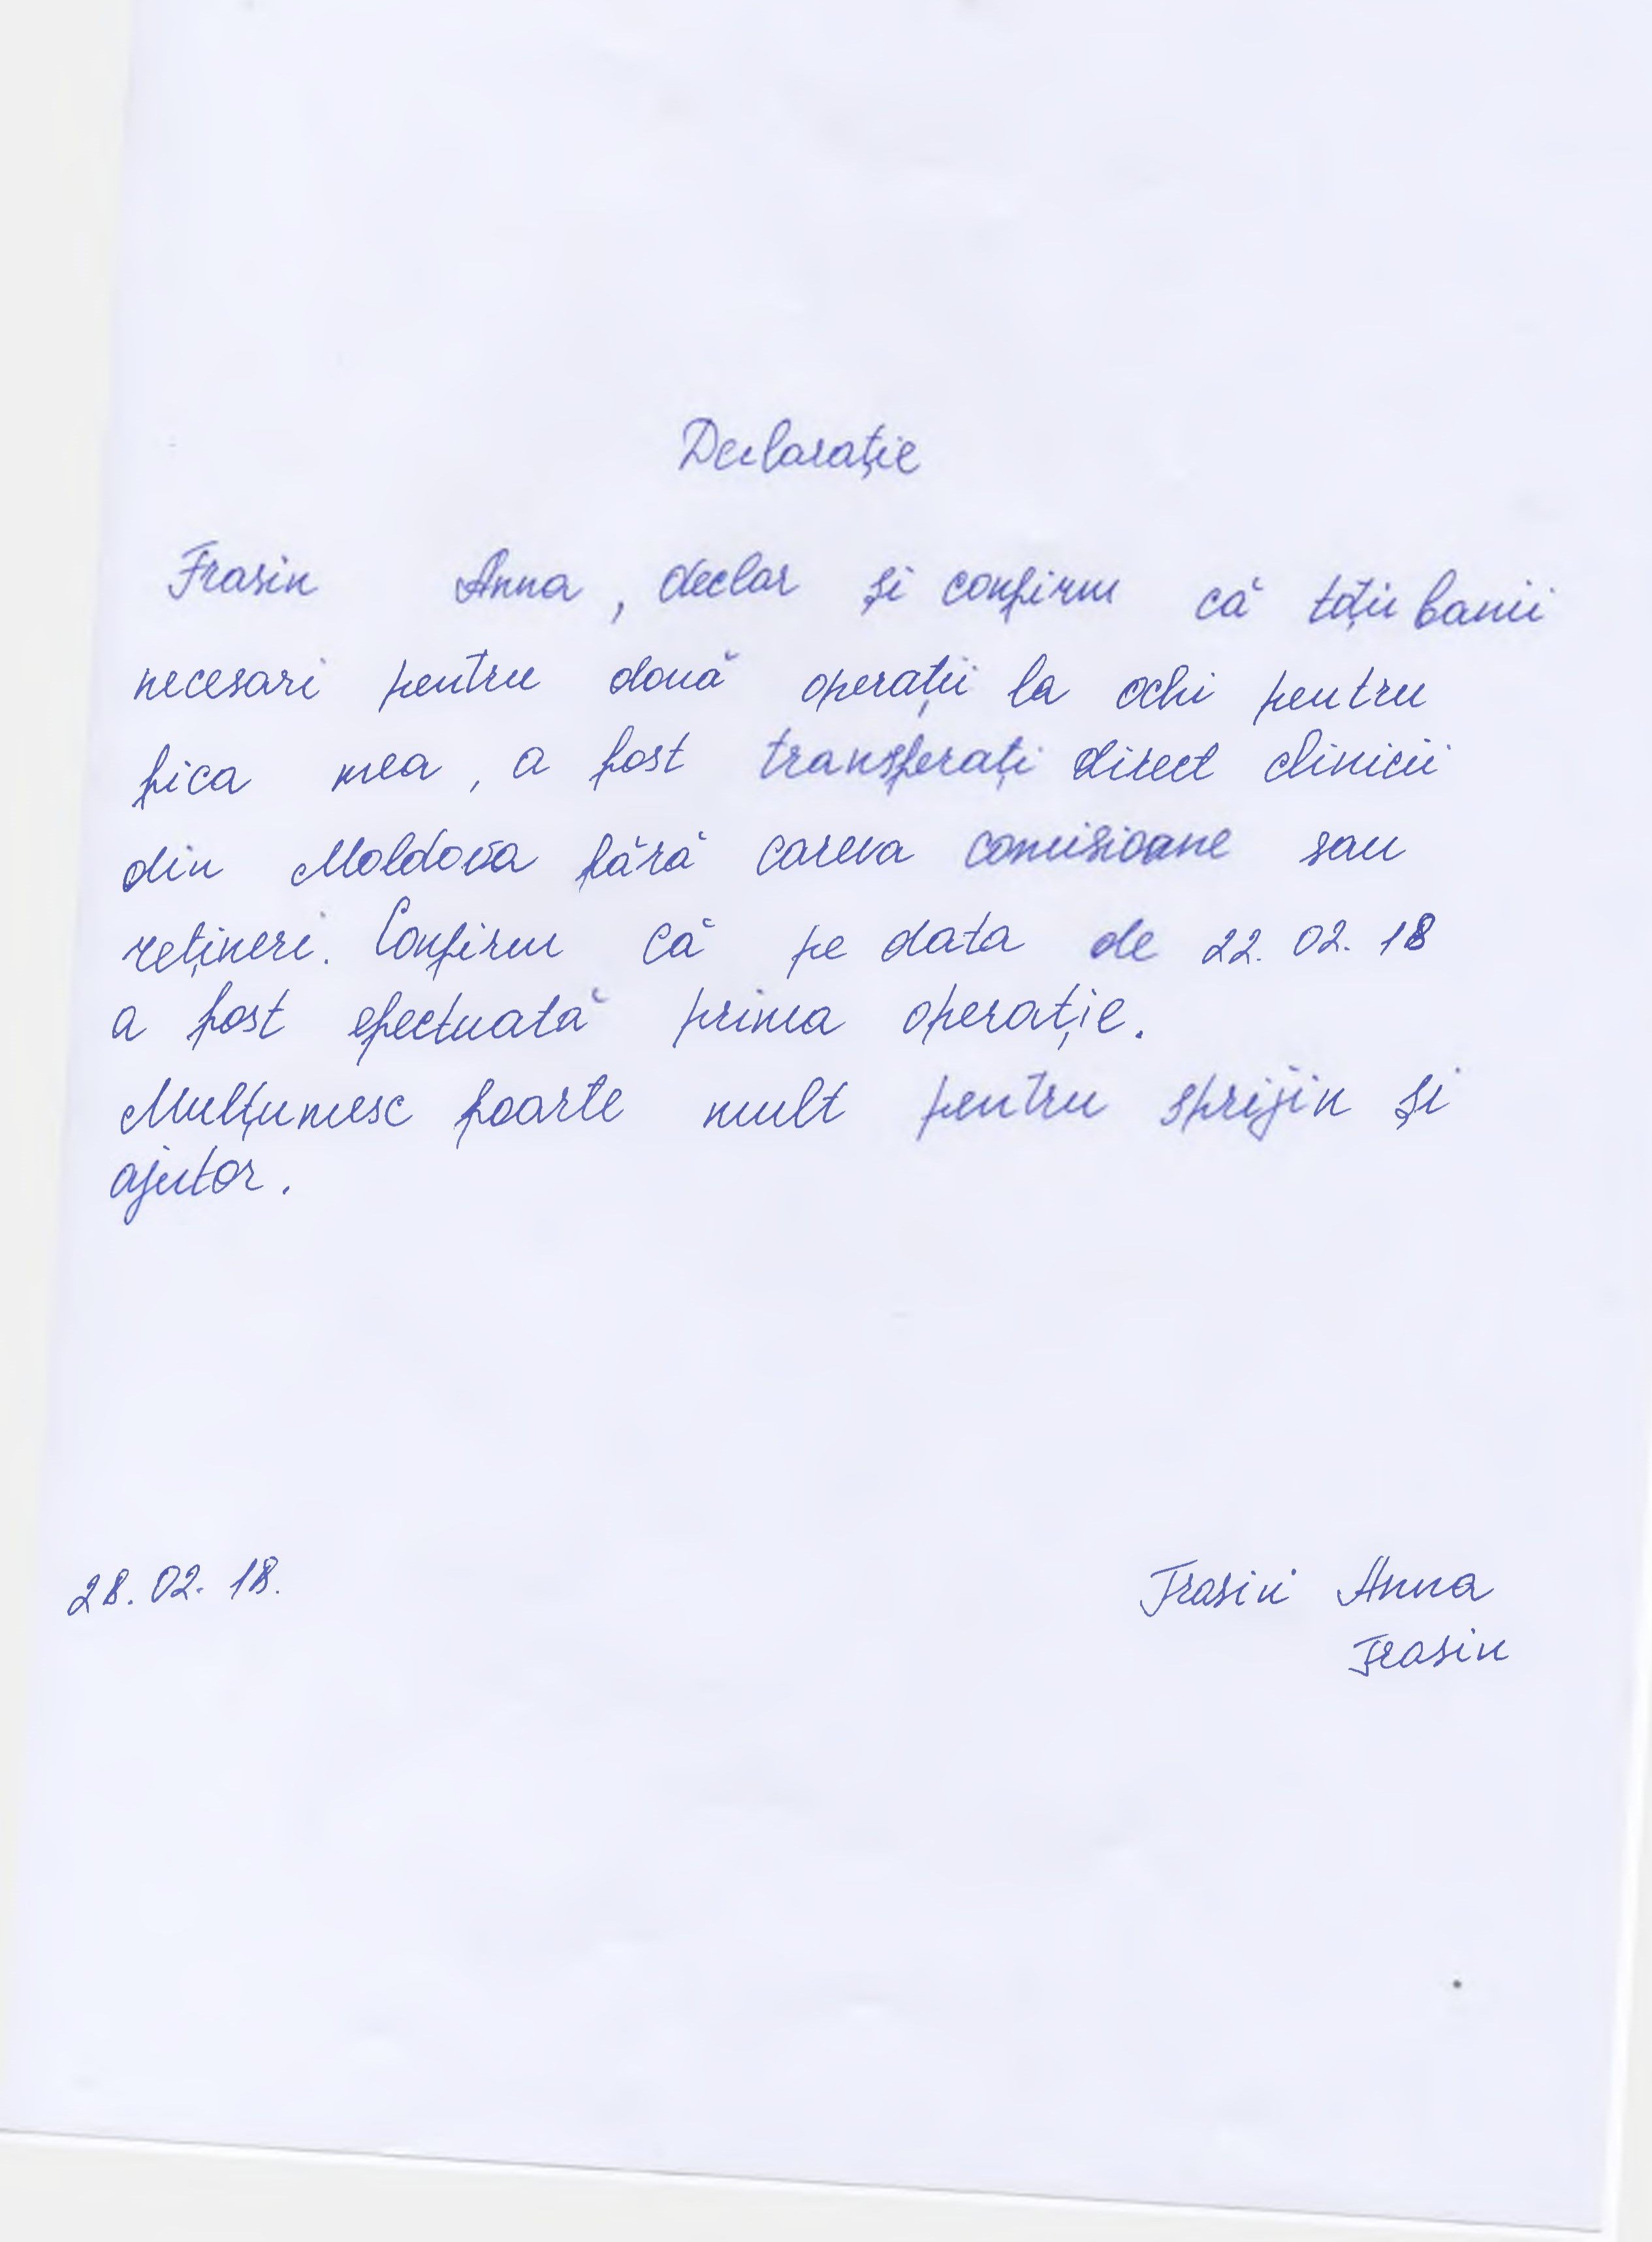 Declarație
Frasin Anna, declar și confirm că toții banii
necesari pentru două operații la ochi pentru
fica mea, a fost transferați direct clinicii
din Moldova fără careva comisioane sau
rețineri. Confirm că pe data de 22.02.18
a fost efectuată prima operație.
Mulțumesc foarte mult pentru sprijin și
ajutor.
28.02.18. Frasin Anna
Frasin